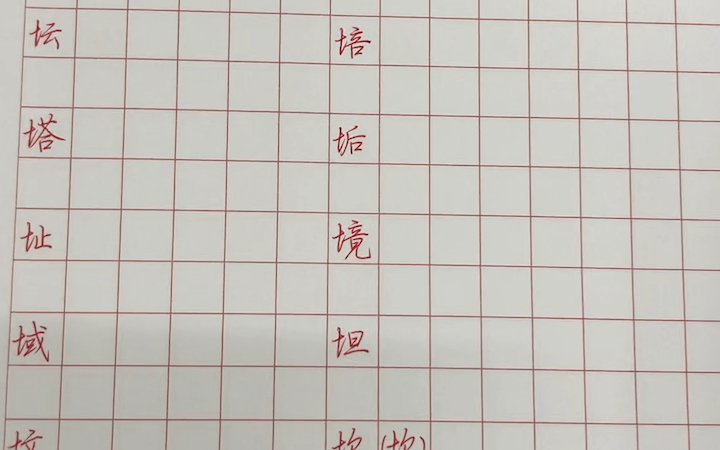 坛 培
塔 垢
址 境
域 坦